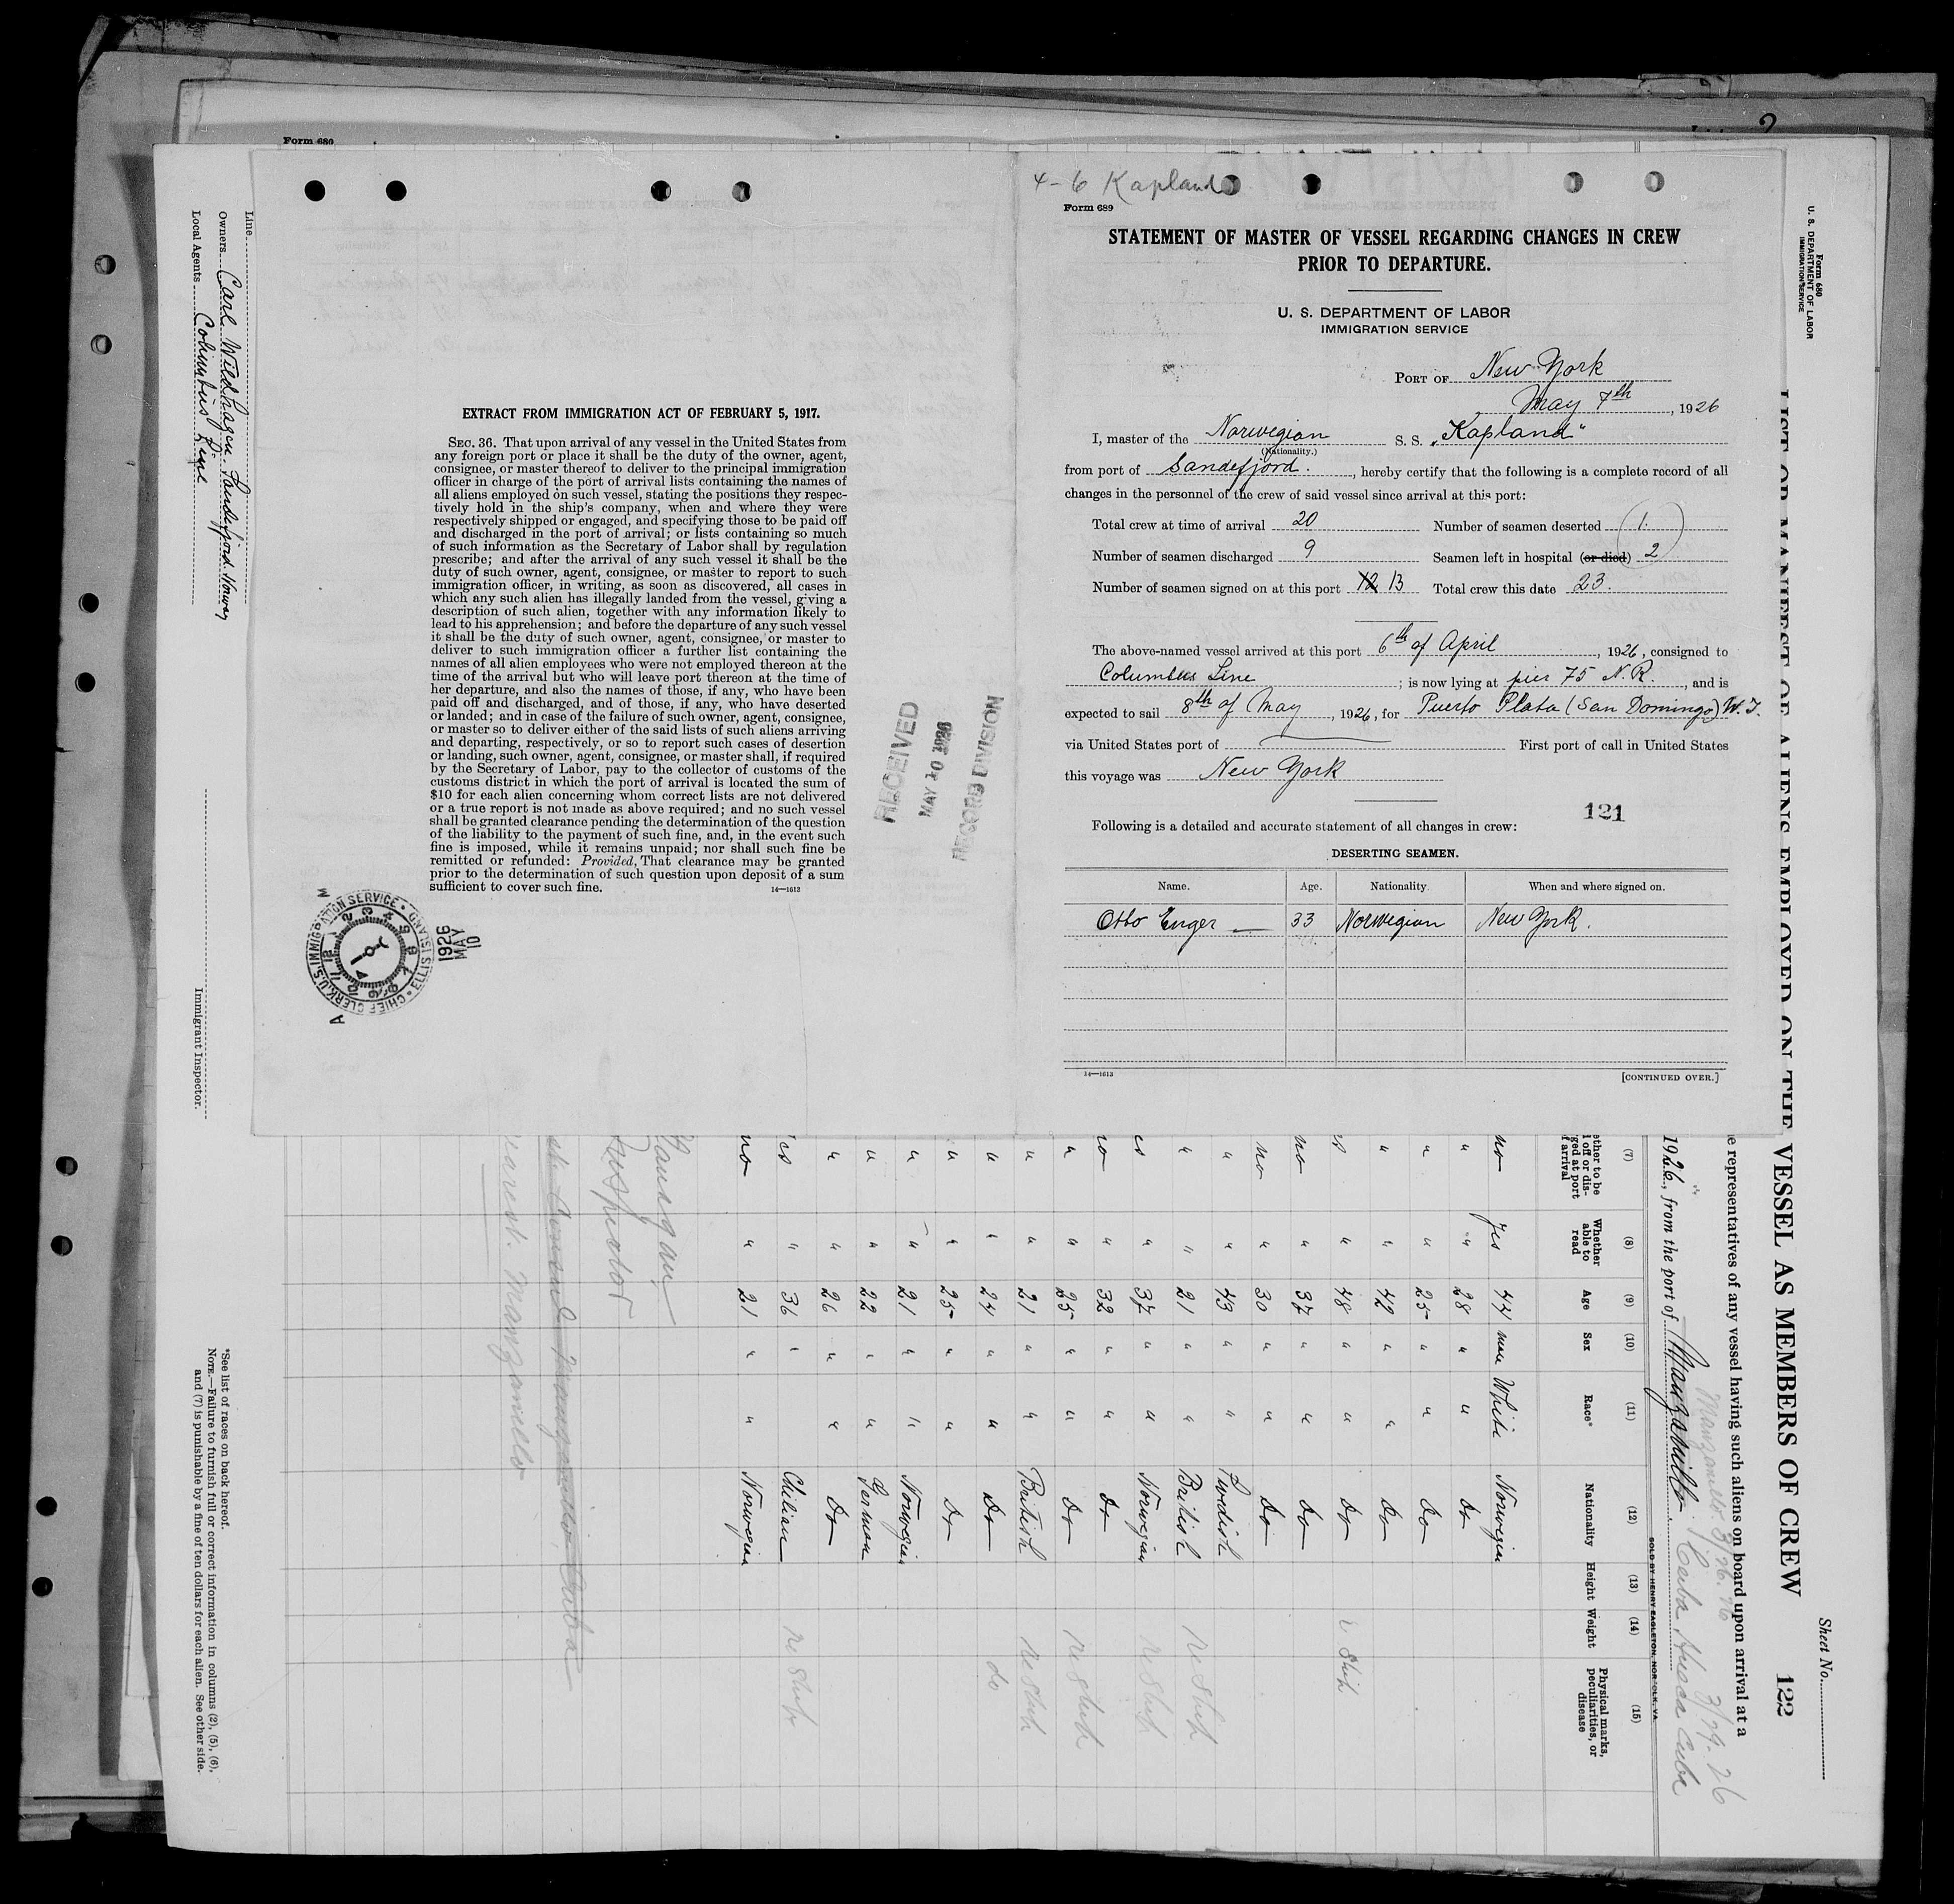 Form 680
4-6 Kapland
Form 689
STATEMENT OF MASTER OF VESSEL REGARDING CHANGES IN CREW
PRIOR TO DEPARTURE.
U. S. DEPARTMENT OF LABOR
IMMIGRATION SERVICE
PORT OF New York
May 7th, 1926
I, master of the Norwegian S. S. „Kapland"
(Nationality.)
from port of Sandefjord., hereby certify that the following is a complete record of all
changes in the personnel of the crew of said vessel since arrival at this port:
Total crew at time of arrival 20 Number of seamen deserted 1.
Number of seamen discharged 9 Seamen left in hospital (or died) 2
Number of seamen signed on at this port 12 13 Total crew this date 23.
The above-named vessel arrived at this port 6th of April, 1926, consigned to
Columbus Line; is now lying at pier 75 N.R., and is
expected to sail 8th of May, 1926, for Puerto Plata (San Domingo) W.I.
via United States port of First port of call in United States
this voyage was New York
121
Following is a detailed and accurate statement of all changes in crew:
DESERTING SEAMEN.
Name. Age. Nationality. When and where signed on.
Otto Enger 33 Norwegian New York.
14—1613
[CONTINUED OVER.]
EXTRACT FROM IMMIGRATION ACT OF FEBRUARY 5, 1917.
SEC. 36. That upon arrival of any vessel in the United States from
any foreign port or place it shall be the duty of the owner, agent,
consignee, or master thereof to deliver to the principal immigration
officer in charge of the port of arrival lists containing the names of
all aliens employed on such vessel, stating the positions they respec-
tively hold in the ship's company, when and where they were
respectively shipped or engaged, and specifying those to be paid off
and discharged in the port of arrival; or lists containing so much
of such information as the Secretary of Labor shall by regulation
prescribe; and after the arrival of any such vessel it shall be the
duty of such owner, agent, consignee, or master to report to such
immigration officer, in writing, as soon as discovered, all cases in
which any such alien has illegally landed from the vessel, giving a
description of such alien, together with any information likely to
lead to his apprehension; and before the departure of any such vessel
it shall be the duty of such owner, agent, consignee, or master to
deliver to such immigration officer a further list containing the
names of all alien employees who were not employed thereon at the
time of the arrival but who will leave port thereon at the time of
her departure, and also the names of those, if any, who have been
paid off and discharged, and of those, if any, who have deserted
or landed; and in case of the failure of such owner, agent, consignee,
or master so to deliver either of the said lists of such aliens arriving
and departing, respectively, or so to report such cases of desertion
or landing, such owner, agent, consignee, or master shall, if required
by the Secretary of Labor, pay to the collector of customs of the
customs district in which the port of arrival is located the sum of
$10 for each alien concerning whom correct lists are not delivered
or a true report is not made as above required; and no such vessel
shall be granted clearance pending the determination of the question
of the liability to the payment of such fine, and, in the event such
fine is imposed, while it remains unpaid; nor shall such fine be
remitted or refunded: Provided, That clearance may be granted
prior to the determination of such question upon deposit of a sum
sufficient to cover such fine.
14—1613
RECEIVED
MAY 10 1926
RECORD DIVISION
CHIEF CLERK, U.S. IMMIGRATION SERVICE • ELLIS ISLAND
1926
MAY
10
A M
Form 680
U. S. DEPARTMENT OF LABOR
IMMIGRATION SERVICE
Sheet No.
LIST OR MANIFEST OF ALIENS EMPLOYED ON THE VESSEL AS MEMBERS OF CREW 122
representatives of any vessel having such aliens on board upon arrival at a
Manzanillo 3/26.26 3/29-26
1926, from the port of Manzanillo. Cuba
SOLD BY HENRY EAGLETON, NORFOLK, VA.
(7) (8) (9) (10) (11) (12) (13) (14) (15)
Whether able to read Age Sex Race* Nationality Height Weight Physical marks, peculiarities, or disease
no Yes 44 male White Norwegian
" " 28 " " Do
" " 25 " " Do
" " 42 " " Do
" 48 " " Do
no " 37 " " Do
no " 30 " " Do
" " 43 " " Swedish
" " 21 " " British
" 37 " " Norwegian
" 32 " " Do
" " 25 " " Do
" " 21 " " British
" " 24 " " Do do
" " 25 " " Do
" " 21 " " Norwegian
" " 22 " " German
" " 26 " " Do
" 36 " Chilian
no " 21 " " Norwegian
Inspector
Manzanillo
Line
Owners Carl Wildhagen. Sandefjord. Norway
Local Agents Columbus Line
Immigrant Inspector.
*See list of races on back hereof.
NOTE.—Failure to furnish full or correct information in columns (2), (5), (6),
and (7) is punishable by a fine of ten dollars for each alien. See other side.